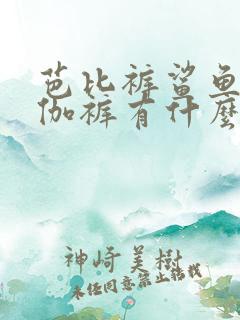 芭比裤鲨鱼
伽裤有什麽
神崎美樹
未经同意禁止转载